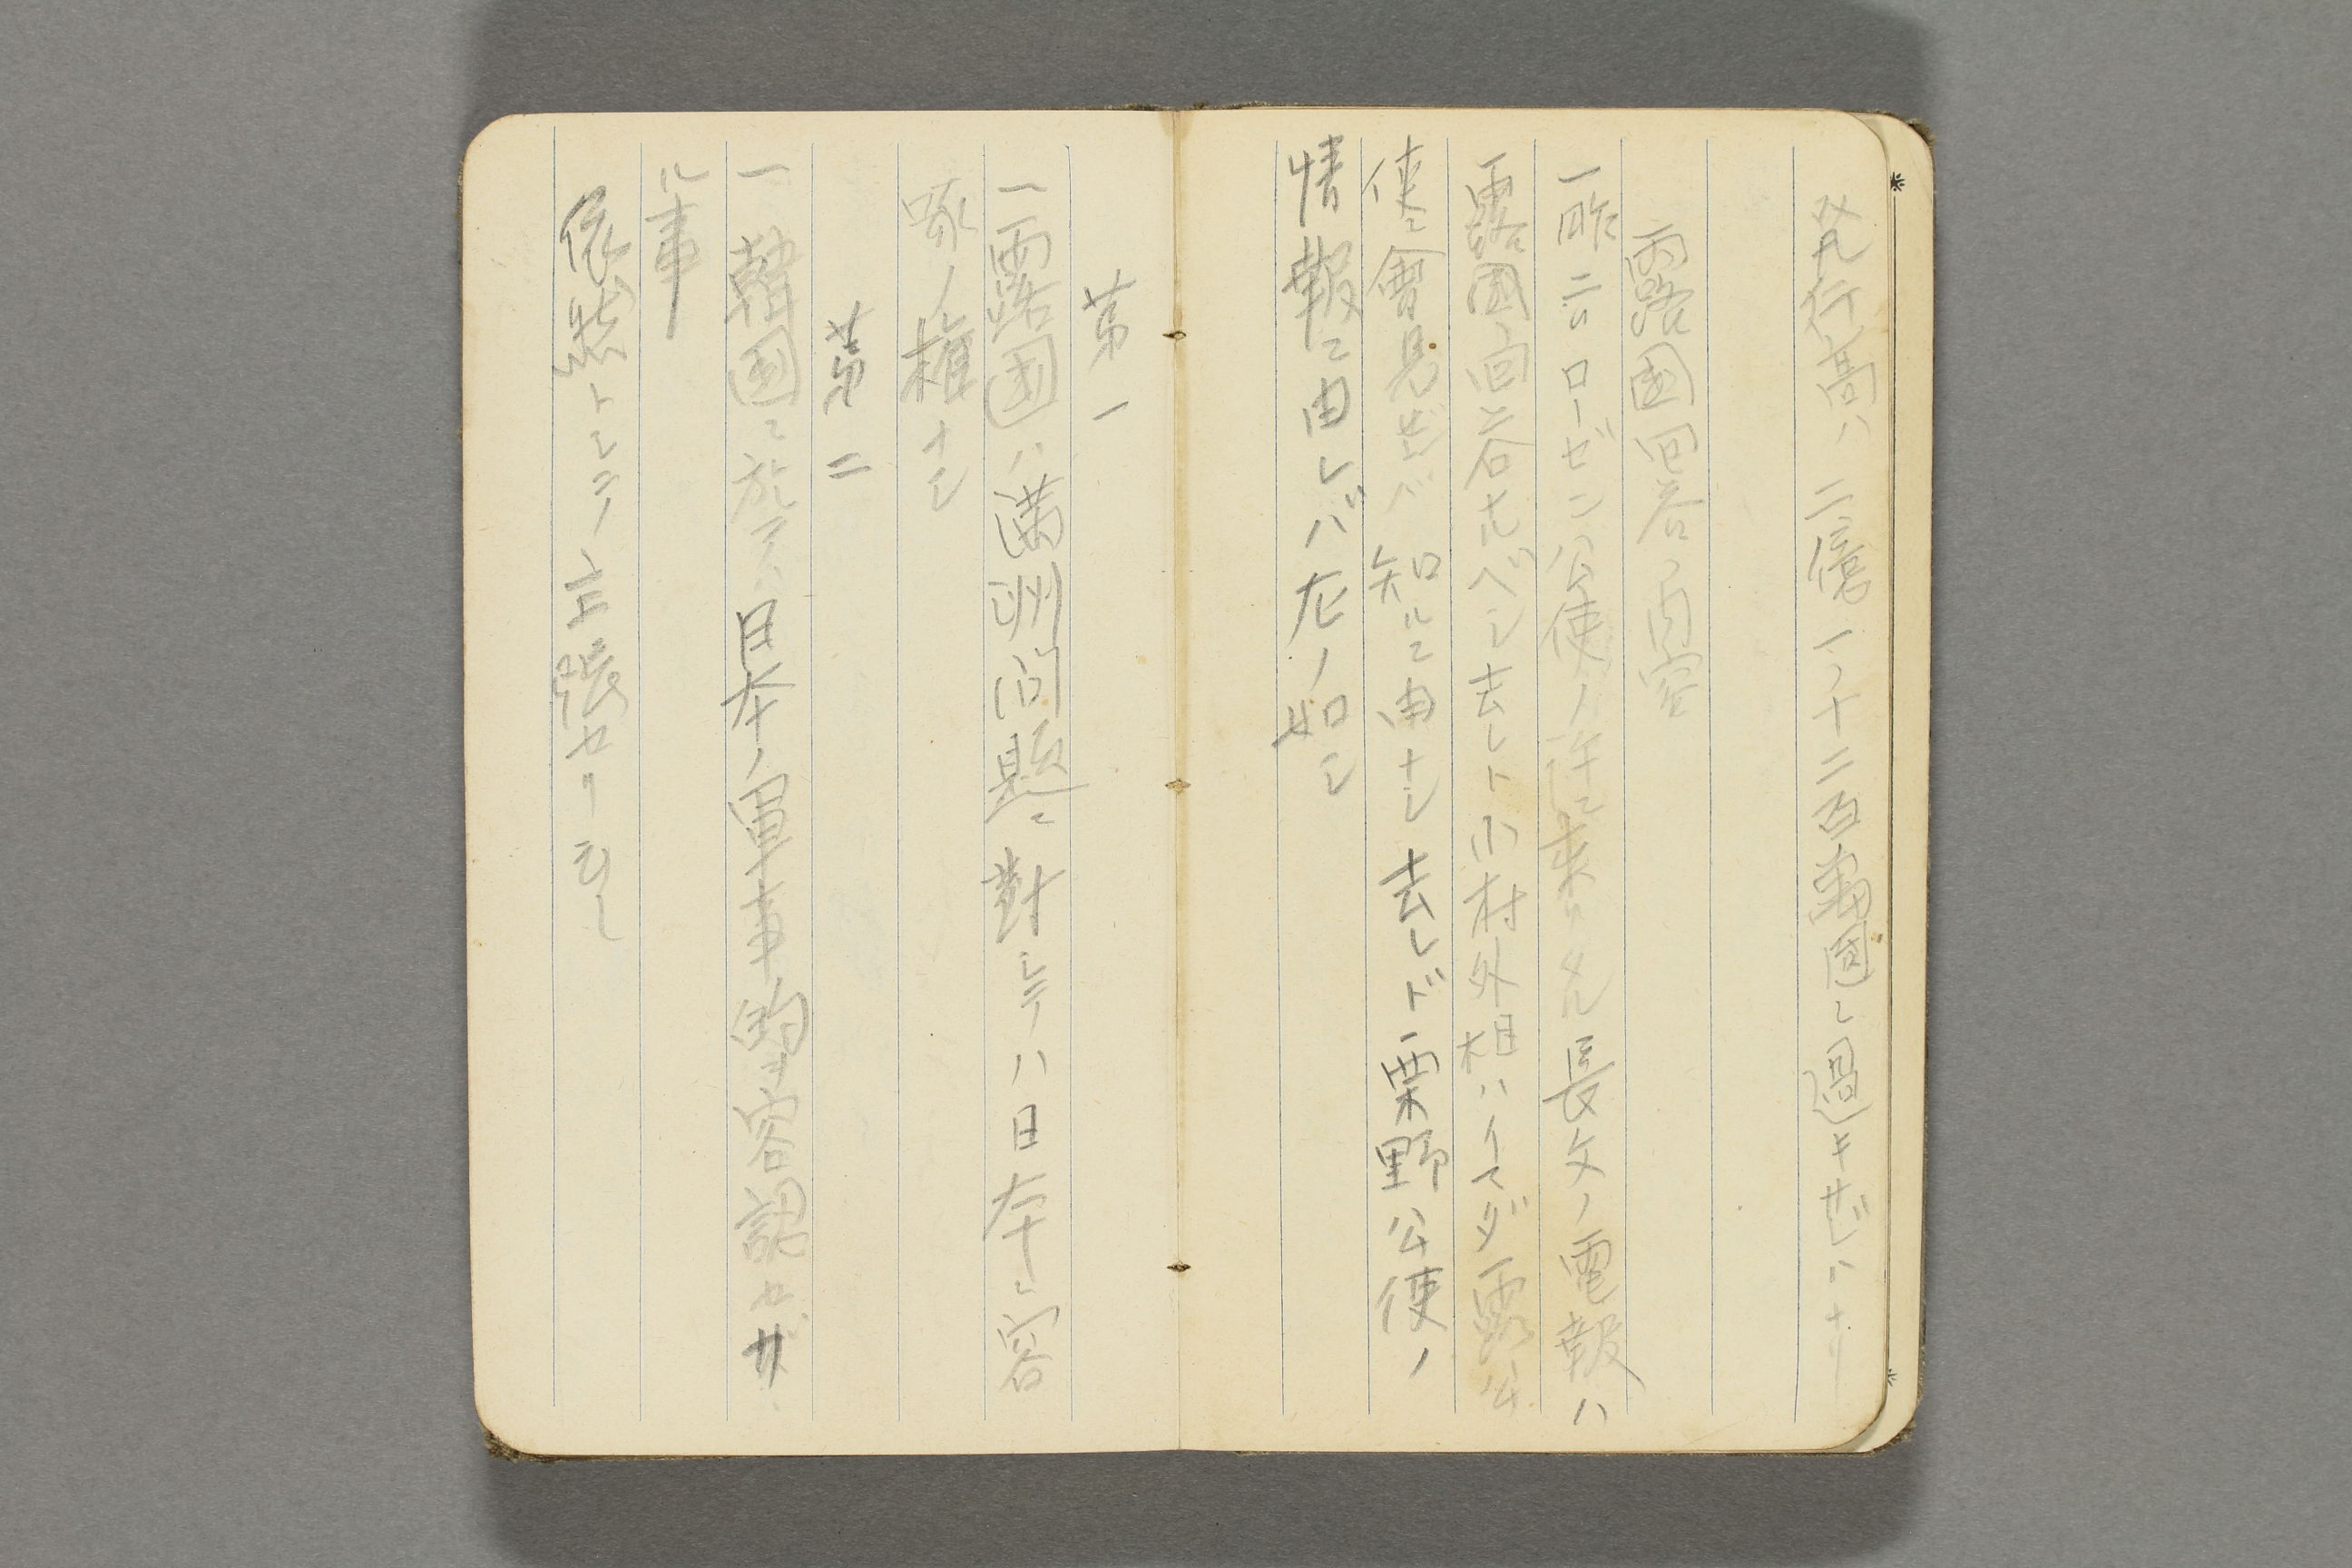 発行高ハ二億一ノ千二百萬圓ニ過キザルハナリ
露國回答ノ内容
一昨三日ローゼン公使ノ許ニ来リタル長文ノ電報ハ
露國回答ナルベシ去レト小村外相ハイマダ露公
使ニ會見セザレバ知ルニ由ナシ去レド栗野公使ノ
情報ニ由レバ左ノ如シ
第一
一露国ハ満洲问題ニ對シテハ日本ニ容
啄ノ権ナシ
第二
一韓国ニ於テハ日本ノ軍事的ヲ容認セザ
ル事
依然トシテ主張セリ云々